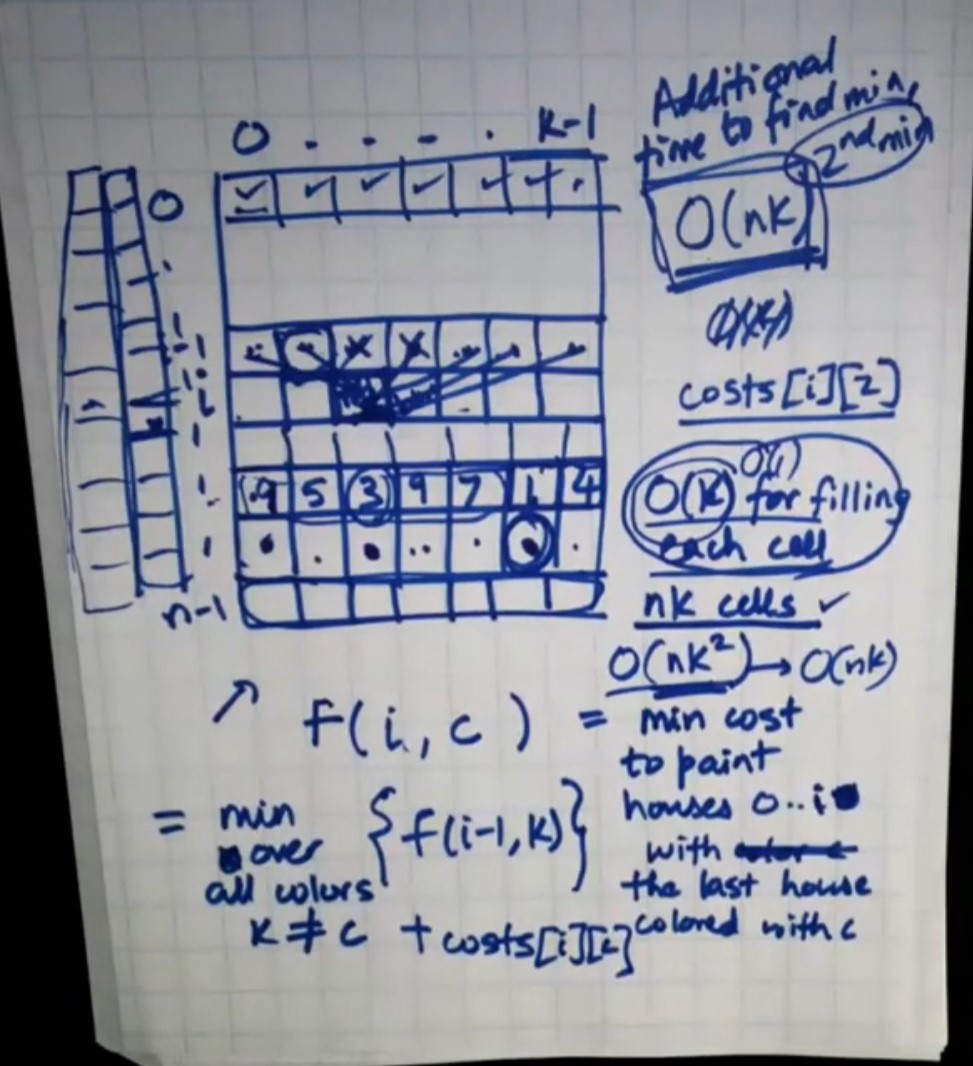 Additional
time to find min,
2nd min
0 . - - . K-1
0
O(nk)
costs[i][2]
9 5 3 9 7 1 4
O(1)
O(k) for filling
each cell
n-1
nk cells ✓
O(nk²) → O(nk)
f(i, c) = min cost
to paint
houses 0..i
with
the last house
colored with c
= min
over
all colors
k ≠ c
{f(i-1, k)}
+ costs[i][c]